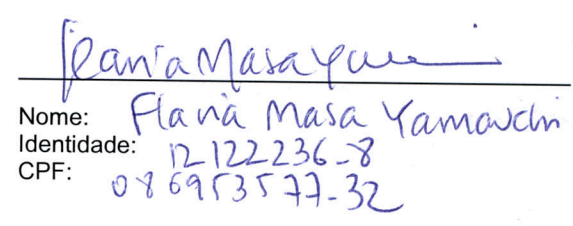 Flavia Masa Yamauchi
Nome: Flavia Masa Yamauchi
Identidade: 12122236-8
CPF: 086953577-32